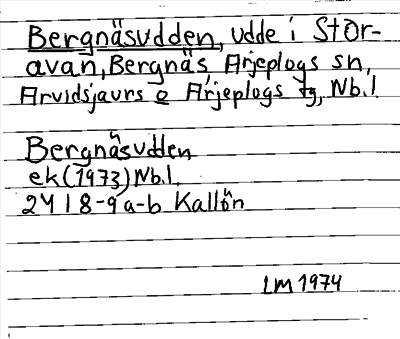 Bergnäsudden, udde i Stor-
avan, Bergnäs Arjeplogs sn,
Arvidsjaurs o Arjeplogs tg, Nb.l
Bergnäsudden
ek (1973) Nb.l.
24 I 8-9 a-b Kallön
LM 1974